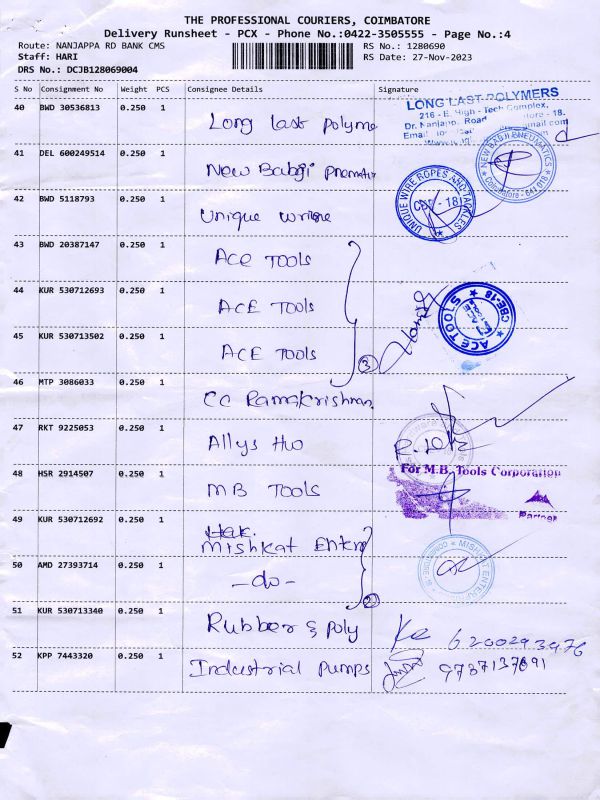 THE PROFESSIONAL COURIERS, COIMBATORE
Delivery Runsheet - PCX - Phone No.:0422-3505555 - Page No.:4
Route: NANJAPPA RD BANK CMS RS No.: 1280690
Staff: HARI RS Date: 27-Nov-2023
DRS No.: DCJB128069004
S No Consignment No Weight PCS Consignee Details Signature
40 BWD 30536813 0.250 1 Long last polyme
LONG LAST POLYMERS
216 - E, High - Tech Complex,
Dr. Nanjappa Road
41 DEL 600249514 0.250 1 New Babji pnematic
NEW BABJI PNEUMATICS
Coimbatore - 641 018
42 BWD 5118793 0.250 1 Unique wire
UNIQUE WIRE ROPES AND TACKLES
CBE - 18
43 BWD 20387147 0.250 1 ACE TOOLS
44 KUR 530712693 0.250 1 ACE TOOLS
ACE TOOLS CBE-18
45 KUR 530713502 0.250 1 ACE TOOLS 3
46 MTP 3086033 0.250 1 CC Ramakrishnan
47 RKT 9225053 0.250 1 Allys Hw
48 HSR 2914507 0.250 1 MB TOOLS
For M.B. Tools Corporation
Partner
49 KUR 530712692 0.250 1 Mishkat Entr
MISHKAT ENTERPRISES
50 AMD 27393714 0.250 1 -do- 2
51 KUR 530713340 0.250 1 Rubber & Poly 6200293976
52 KPP 7443320 0.250 1 Industrial Pumps 9787137691